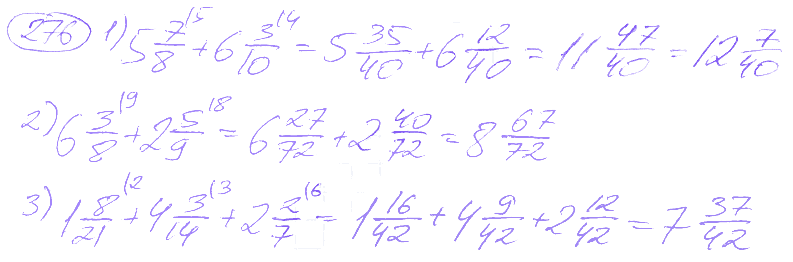 276 1) 5 7/8 (5 + 6 3/10 (4 = 5 35/40 + 6 12/40 = 11 47/40 = 12 7/40
2) 6 3/8 (9 + 2 5/9 (8 = 6 27/72 + 2 40/72 = 8 67/72
3) 1 8/21 (2 + 4 3/14 (3 + 2 2/7 (6 = 1 16/42 + 4 9/42 + 2 12/42 = 7 37/42